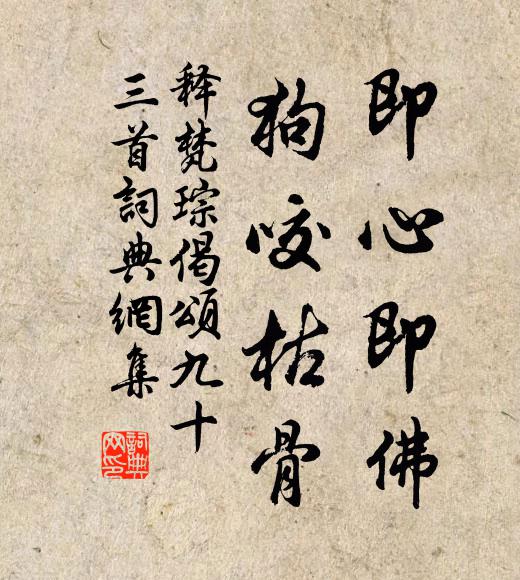 即心即佛
狗咬枯骨
释梵琮偈頌九十
三首詞典網集
詞典網印